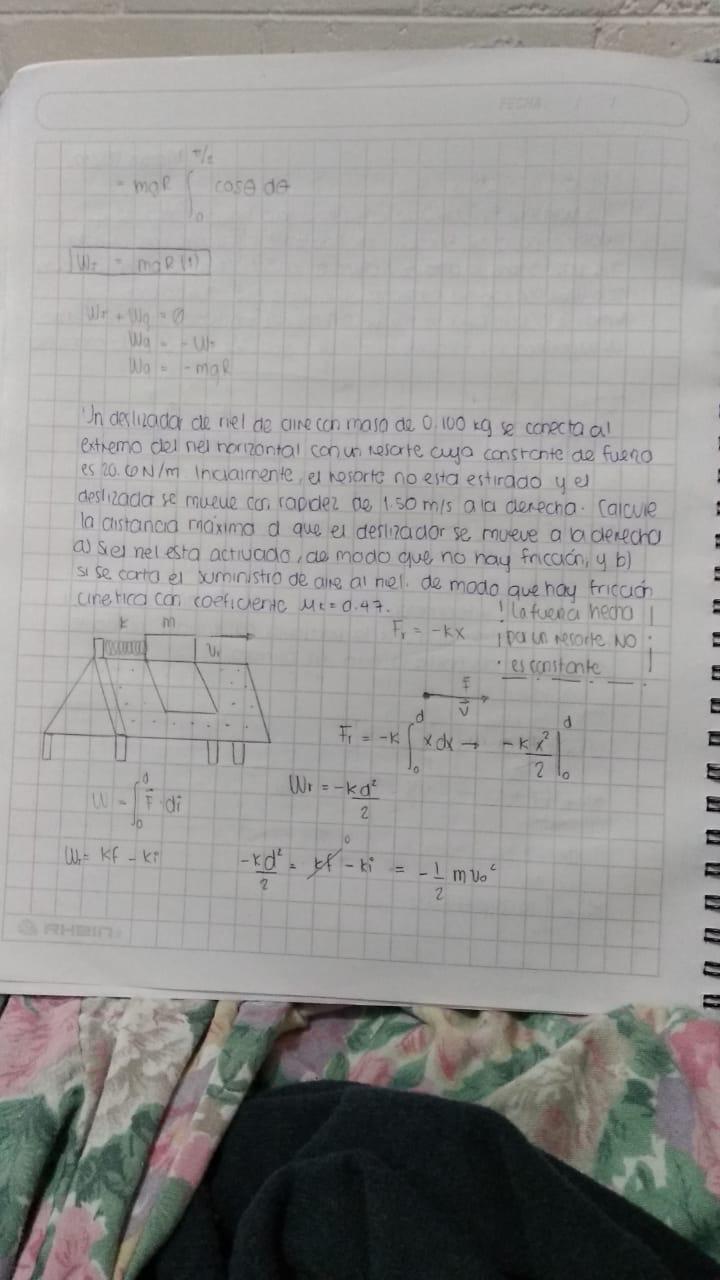 FECHA / /
π/2
= mgR ∫ cosθ dθ
0
WT = mgR (1)
WT + Wg = 0
Wg = - WT
Wg = - mgR
Un deslizador de riel de aire con masa de 0.100 kg se conecta al
extremo del riel horizontal con un resorte cuya constante de fuerza
es 20.0 N/m Incialmente, el resorte no esta estirado y el
deslizada se mueve con rapidez de 1.50 m/s a la derecha. Calcule
la distancia máxima d que el deslizador se mueve a la derecha
a) si el riel esta activado, de modo que no hay fricción, y b)
si se corta el suministro de aire al riel. de modo que hay fricción
cinetica con coeficiente μk = 0.47.
¡ la fuerza hecha
Fr = -kx
por un resorte NO
es constante !
k m
v₁
F
v
Fr = -k ∫₀ᵈ x dx → -kx²/2 |₀ᵈ
Wr = -kd²/2
W = ∫₀ᵈ F · dr
WT = kf - ki
-kd²/2 = kf⁰ - ki = -1/2 m v₀²
RHEIN